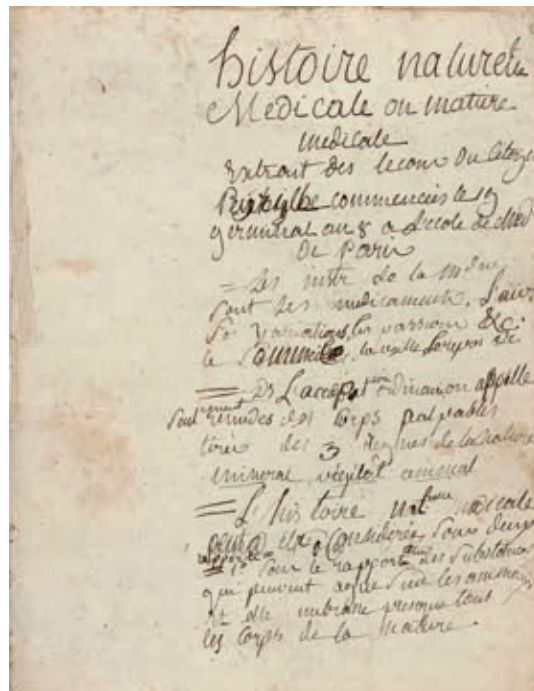 histoire naturelle
Medicale ou matiere
medicale
Extrait des lecons du Citoyen
commencées le 19
germinal an 8 a L'ecole de Med
de Paris
= Les instr de la Mdne
sont les medicaments, L'air
ses variations, les passions &c.
le sommeil, la veille Le repos &c
= Ds L'acception ordinaire on appelle
seulement remedes des corps palpables
tirés des 3 Regnes de la nature
mineral végétal animal
= L'histoire natrelle medicale
peut etre Considerée sous deux
rapports
= 1° sous le rapport des substances
qui peuvent agir sur les animaux
et elle embrasse presque tous
les Corps de la nature.